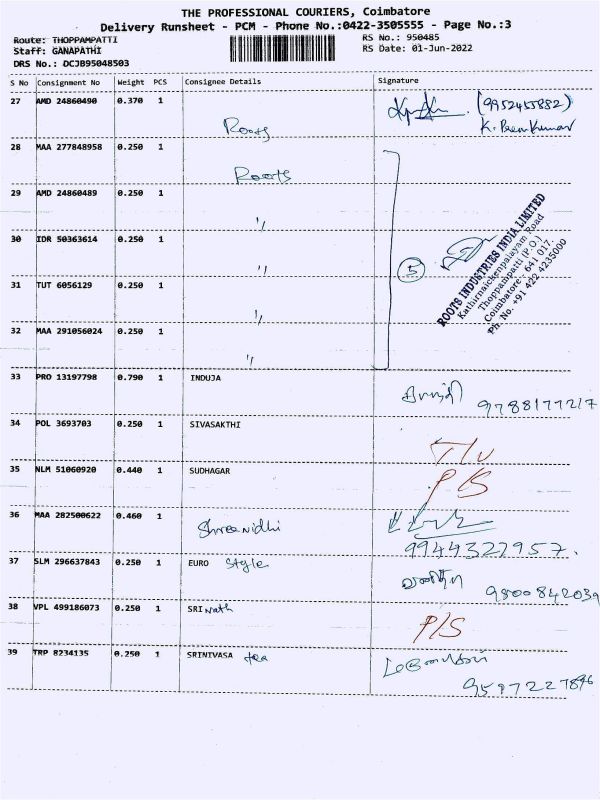 THE PROFESSIONAL COURIERS, Coimbatore
Delivery Runsheet - PCM - Phone No.:0422-3505555 - Page No.:3
Route: THOPPAMPATTI
RS No.: 950485
Staff: GANAPATHI
RS Date: 01-Jun-2022
DRS No.: DCJB95048503
S No Consignment No Weight PCS Consignee Details Signature
27 AMD 24860490 0.370 1 Roots (9952455882)
K. PremKumar
28 MAA 277848958 0.250 1 Roots
29 AMD 24860489 0.250 1 "
30 IDR 50363614 0.250 1 "
31 TUT 6056129 0.250 1 "
32 MAA 291056024 0.250 1 "
5
ROOTS INDUSTRIES INDIA LIMITED
Kathirnaickenpalayam Road
Thoppampatti (P.O.)
Coimbatore - 641 017
Ph. No. +91 422 4235000
33 PRO 13197798 0.790 1 INDUJA 9788177217
34 POL 3693703 0.250 1 SIVASAKTHI
35 NLM 51060920 0.440 1 SUDHAGAR P/S
36 MAA 282500622 0.460 1 Shreenidhi
9944322957.
37 SLM 296637843 0.250 1 EURO Style
9800842039
38 VPL 499186073 0.250 1 SRI nath P/S
39 TRP 8234135 0.250 1 SRINIVASA tea
9597227896